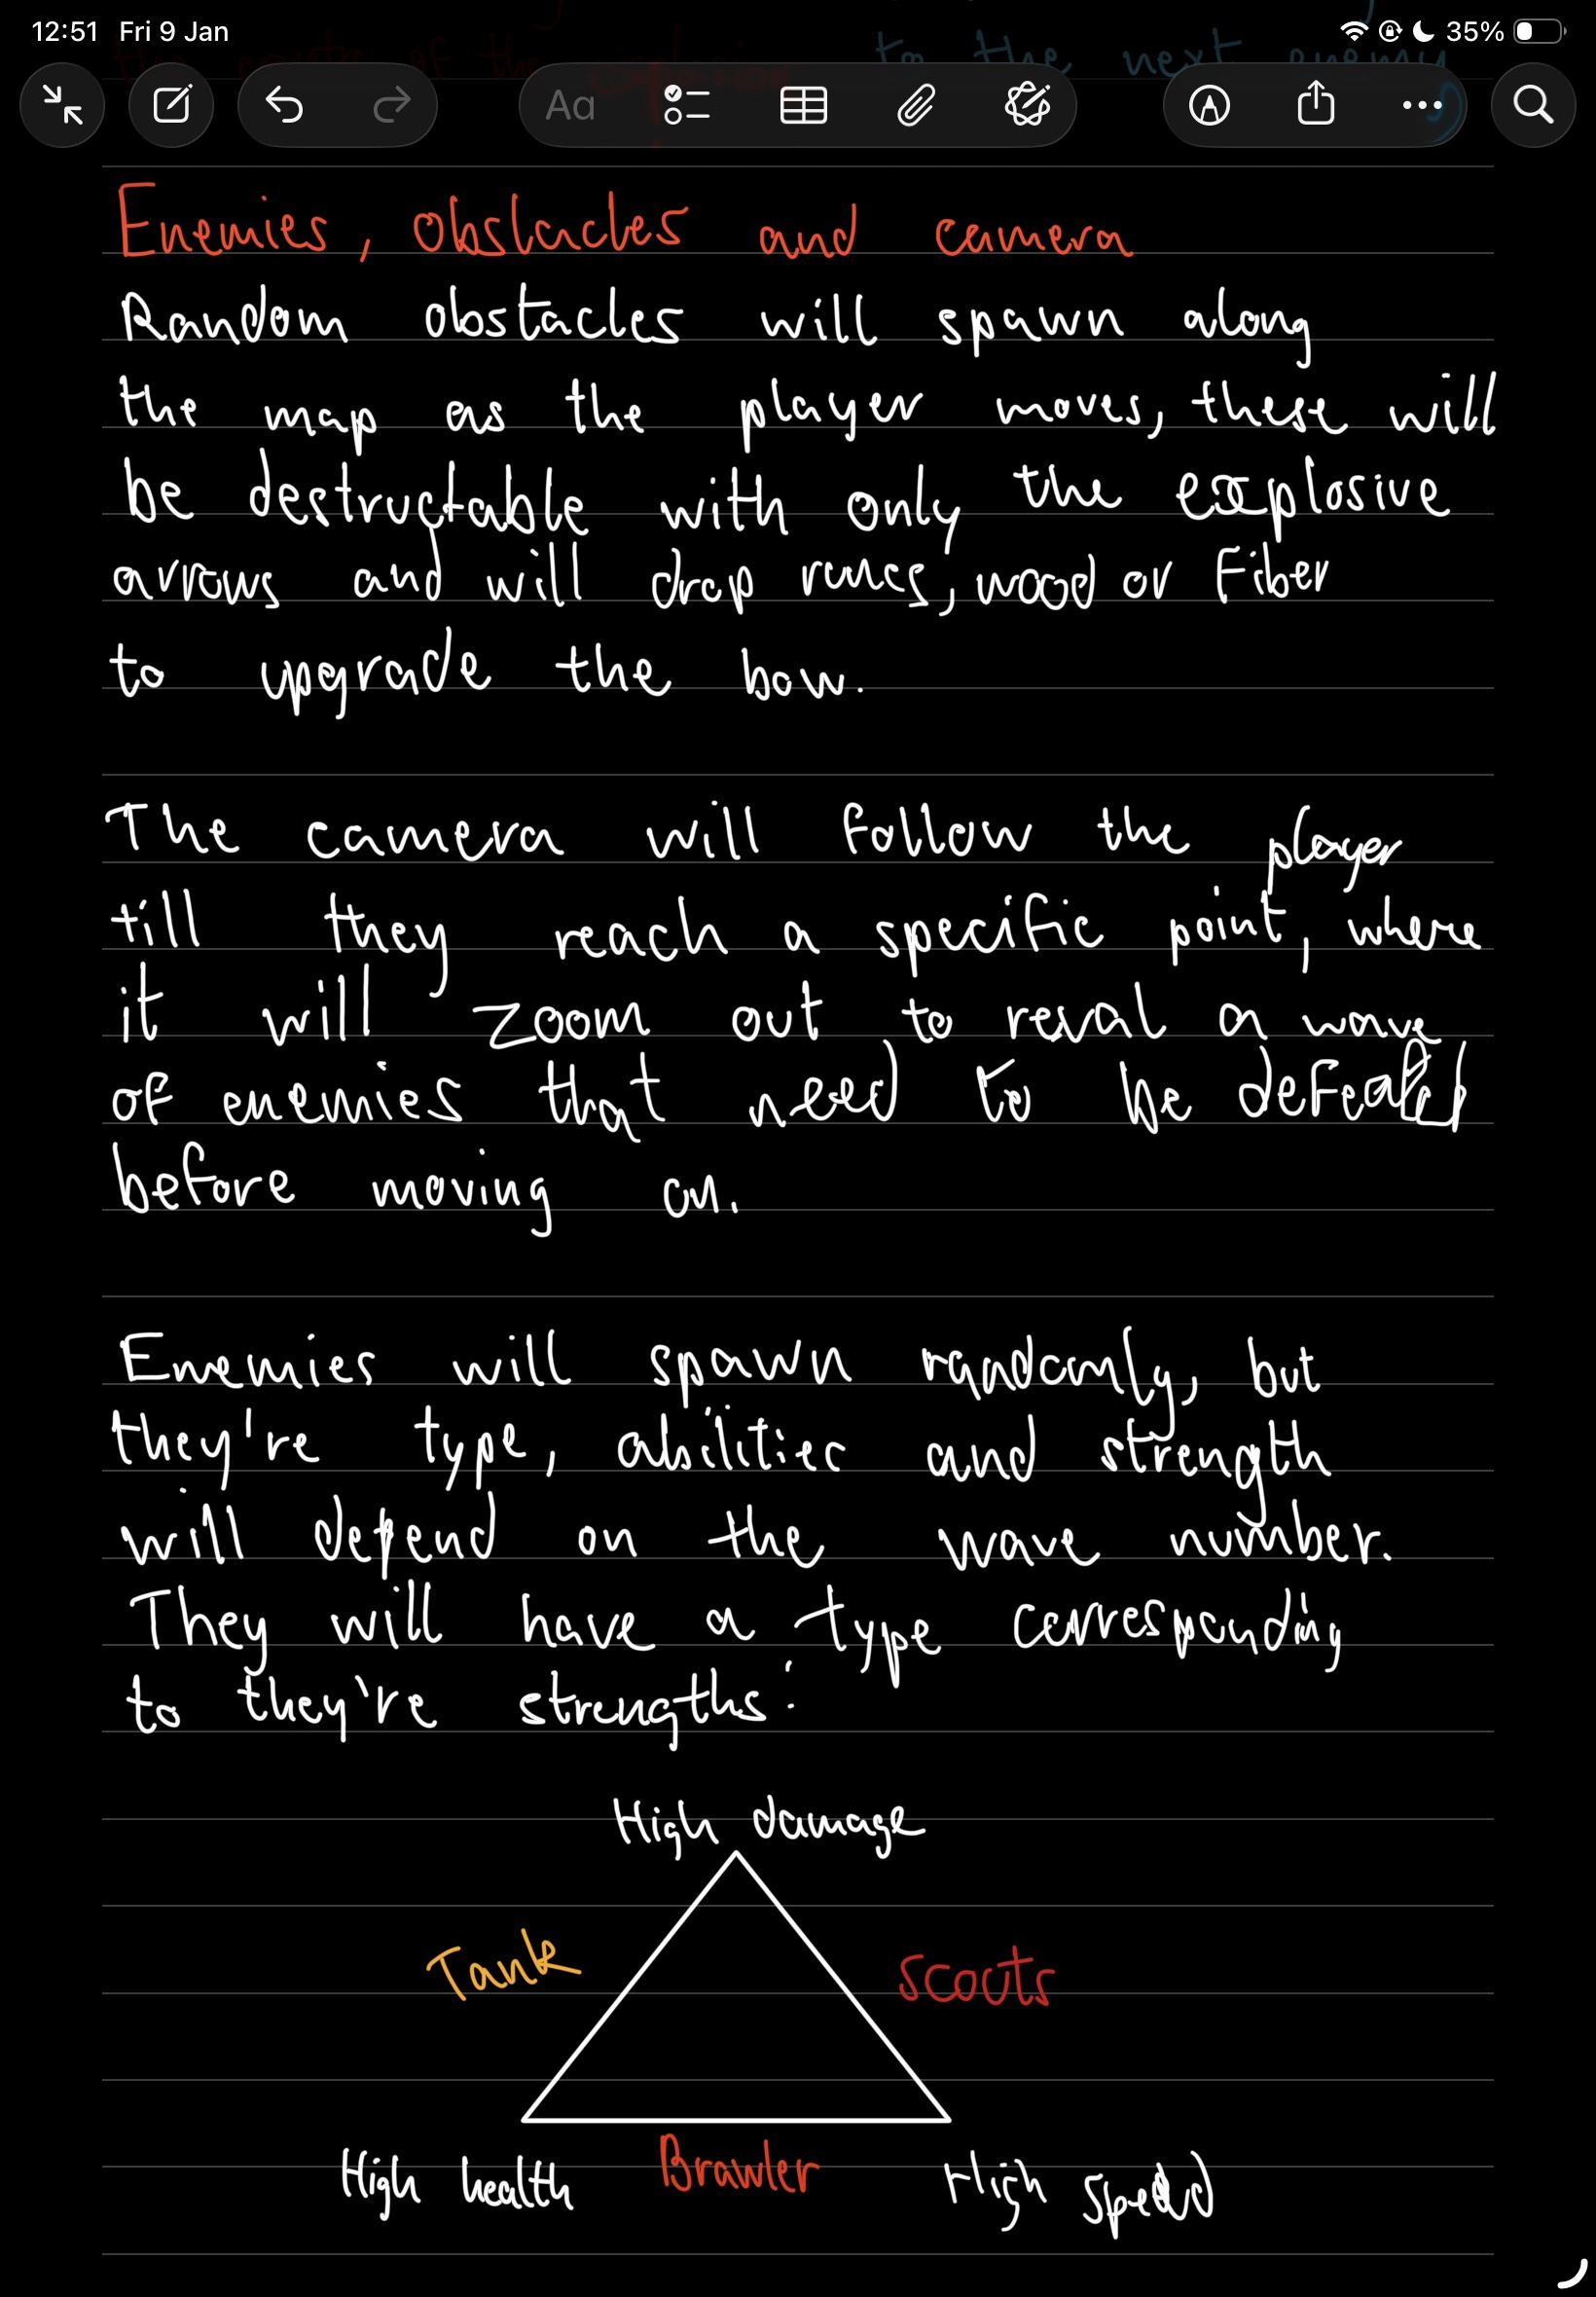 12:51 Fri 9 Jan
35%
to the next enemy
Aa
Enemies, obstacles and camera
Random obstacles will spawn along
the map as the player moves, these will
be destructable with only the explosive
arrows and will drop runes, wood or Fiber
to upgrade the bow.
The camera will follow the player
till they reach a specific point, where
it will zoom out to reval a wave
of enemies that need to be defeated
before moving on.
Enemies will spawn randomly, but
they're type, abilities and strength
will depend on the wave number.
They will have a type corresponding
to they're strengths:
High damage
Tank
Scouts
High health
Brawler
High speed